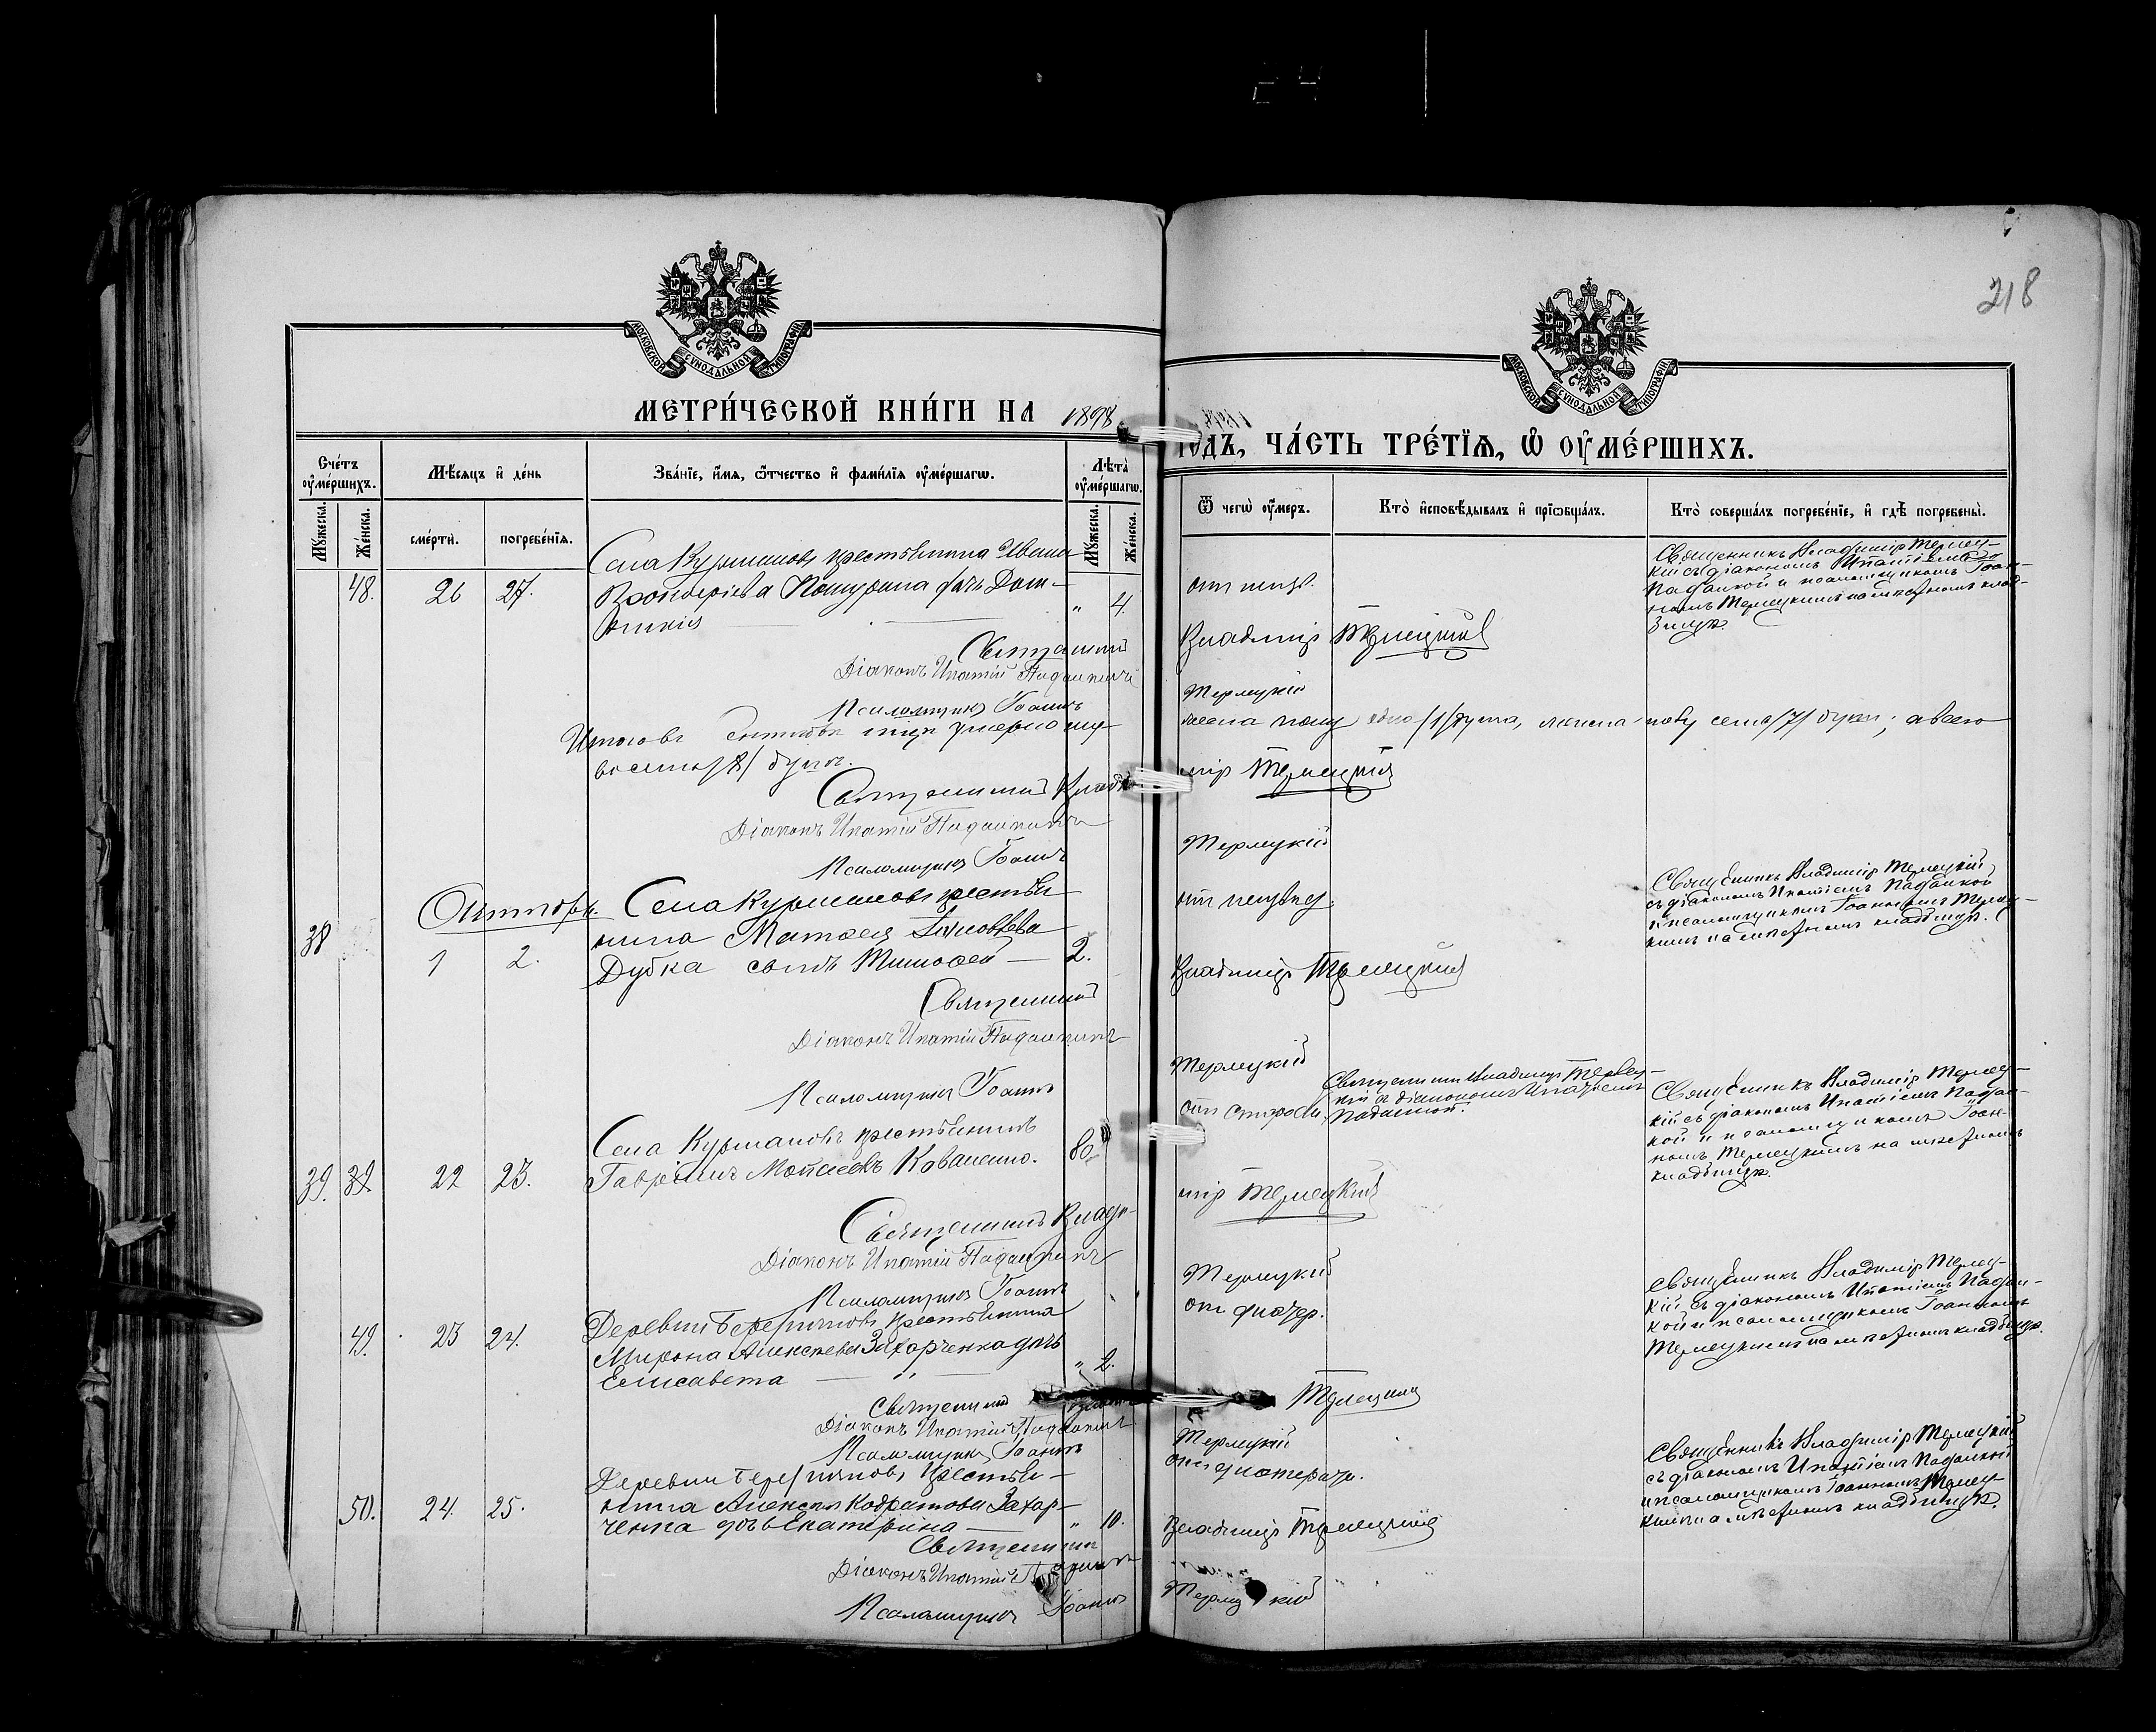 218
МОСКОВСКОЙ СѴНОДАЛЬНОЙ ТИПОГРАФІИ
МОСКОВСКОЙ СѴНОДАЛЬНОЙ ТИПОГРАФІИ
МЕТРИ́ЧЕСКОЙ КНИ́ГИ НА 1898
ГОДЪ, ЧА́СТЬ ТРЕ́ТЇѦ, Ѽ ОУ҆МЕ́РШИХЪ.
Сче́тъ оу҆ме́ршихъ.
Мѣ́сѧцъ и҆ де́нь
Зва́нїе, и҆́мѧ, ѻ҆́тчество и҆ фами́лїѧ оу҆ме́ршагѡ.
Лѣ́та оу҆ме́ршагѡ.
Ѿ чегѡ̀ оу҆́меръ.
Кто̀ и҆сповѣ́дывалъ и҆ прїѡбща́лъ.
Кто̀ соверша́лъ погребе́нїе, и҆ гдѣ̀ погребены̀.
Мꙋ́жеска.
Же́нска.
сме́рти.
погребе́нїѧ.
Мꙋ́жеска.
Же́нска.
48. 26 27.
Села Курмановъ крестьянина Ивана
дочь Дом-
никия " 4.
Священникъ Владимір Терлец-
кій съ діакономъ Ипатіемъ
Падалкой и псаломщикомъ Іоан-
номъ Терлецкимъ на приходскомъ клад-
бищѣ.
Священникъ Владимір Терлецкій
Діаконъ Ипатій Падалкинъ
Псаломщикъ Іоаннъ Терлецкій
Итого въ Сентябрѣ мцѣ умерло муж-
ска полу одна /1/ душа, женска полу семь /7/ душъ; а всего
восемь /8/ душъ.
Священникъ Владимір Терлецкій
Діаконъ Ипатій Падалкинъ
Псаломщикъ Іоаннъ Терлецкій
Октябрь.
38 1 2.
Села Курмановъ крестья-
нина Матѳея
Дубка сынъ Тимоѳей — 2.
Священникъ Владимір Терлецкій
съ діакономъ Ипатіемъ Падалкой
и псаломщикомъ Іоанномъ Терлец-
кимъ на приходскомъ кладбищѣ.
Священникъ Владимір Терлецкій
Діаконъ Ипатій Падалкинъ
Псаломщикъ Іоаннъ Терлецкій
39. 39 22 23.
Села Курмановъ крестьянинъ
Гавріилъ Коваленко. 80.
от старости.
Священникъ Владимір Терлец-
кій съ діакономъ Ипатіемъ
Падалкой.
Священникъ Владимір Терлец-
кій съ діакономъ Ипатіемъ Падал-
кой и псаломщикомъ Іоан-
номъ Терлецкимъ на приходскомъ
кладбищѣ.
Священникъ Владимір Терлецкій
Діаконъ Ипатій Падалкинъ
Псаломщикъ Іоаннъ Терлецкій
49. 23 24.
Деревни крестьянина
Мирона Алексѣева Захарченка дочь
Елисавета — " — " 2.
от дифтер.
Священникъ Владимір Терлец-
кій съ діакономъ Ипатіемъ Падал-
кой и псаломщикомъ Іоанномъ
Терлецкимъ на приходскомъ кладбищѣ.
Священникъ Терлецкій
Діаконъ Ипатій Падалкинъ
Псаломщикъ Іоаннъ Терлецкій
50. 24. 25.
Деревни крестья-
нина Алексѣя Кодратова Захар-
ченка дочь Екатерина — " 10.
от дифтерита.
Священникъ Владимір Терлецкій
съ діакономъ Ипатіемъ Падалкой
и псаломщикомъ Іоанномъ Терлец-
кимъ на приходскомъ кладбищѣ.
Священникъ Владимір Терлецкій
Діаконъ Ипатій
Псаломщикъ Іоаннъ Терлецкій